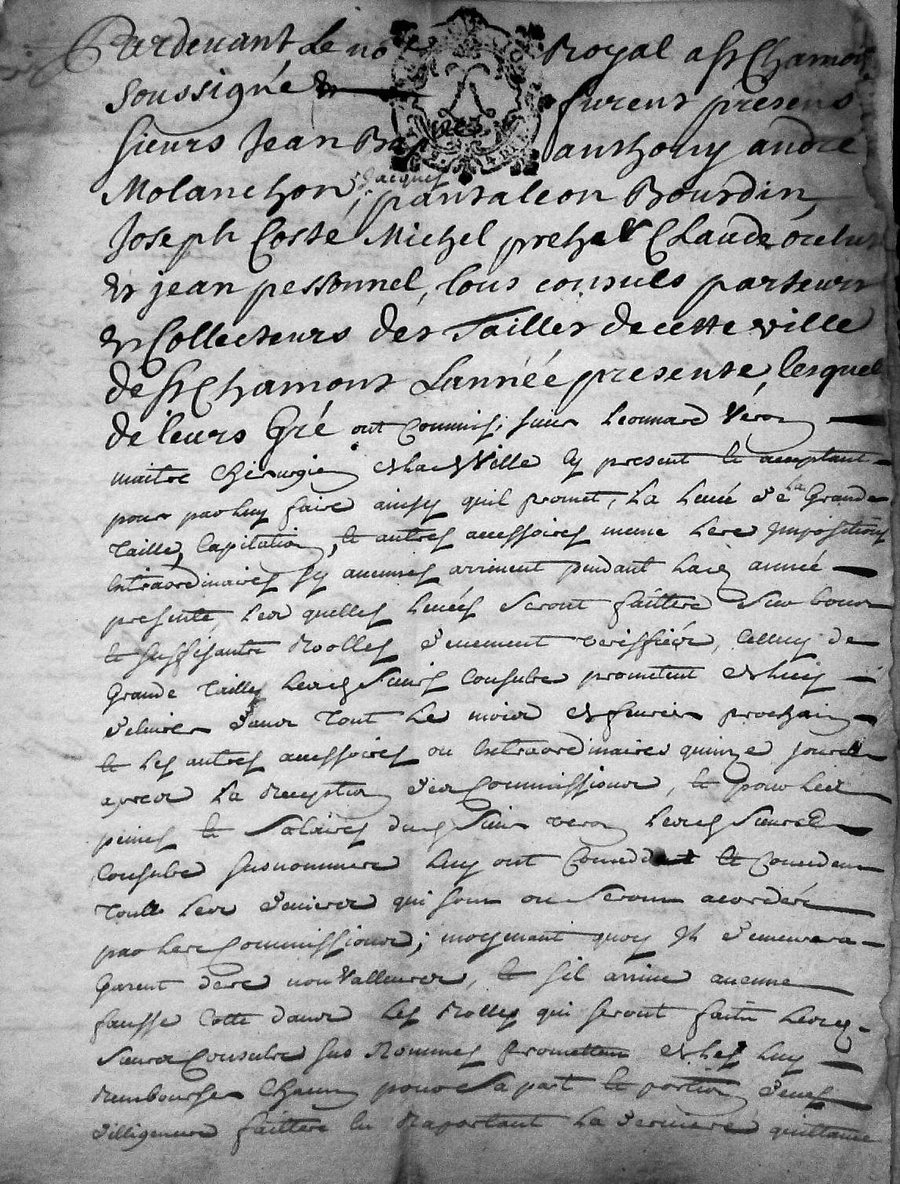 Pardevant Le no Royal a St Chamon
Soussigné & furent presens
sieurs Jean Bap anthony andré
Molanchon, Jacques pantaleon Bourdin,
Joseph Coste Michel Claude
& jean pessonnel, tous consuls parteurs
& Collecteurs des Tailles de cette ville
de St Chamont L'année presente, lesquel
de leurs Gré ont commis, sieur Leonnard Veron
maitre Chirurgien de lad Ville cy present & acceptant
pour par luy faire ainsy quil promet, La Levée de la Grande
Taille, Capitation, & autres accessoires meme des Impositions
Extraordinaires sy aucunes arrivent pendant lad année
presente, lesquelles Levées seront faittes sur bons
& suffisants Roolles duement veriffiés, celluy de
Grande Taille lesd Sieurs Consuls promettent
delivrer dans tout Le mois de fevrier prochain
& Les autres accessoires ou Extraordinaires quinze jours
apres La Reception des Commissions, & pour les
peines & Salaires dud Sieur veron lesd Sieurs
Consuls susnommés luy ont Conceddé & Concedent
tous les deniers qui sont ou seront acordés
par les Commissions; moyenant quoy Il demeurera
Garent des non Valleurs, & sil arrive aucune
fausse Cotte dans Les Rolles qui seront faits lesd
Sieurs Consuls sus Nommés promettent luy
Rembourser Chacun pour Sa part & portion
dilligences faittes En Raportant La derniere quittance